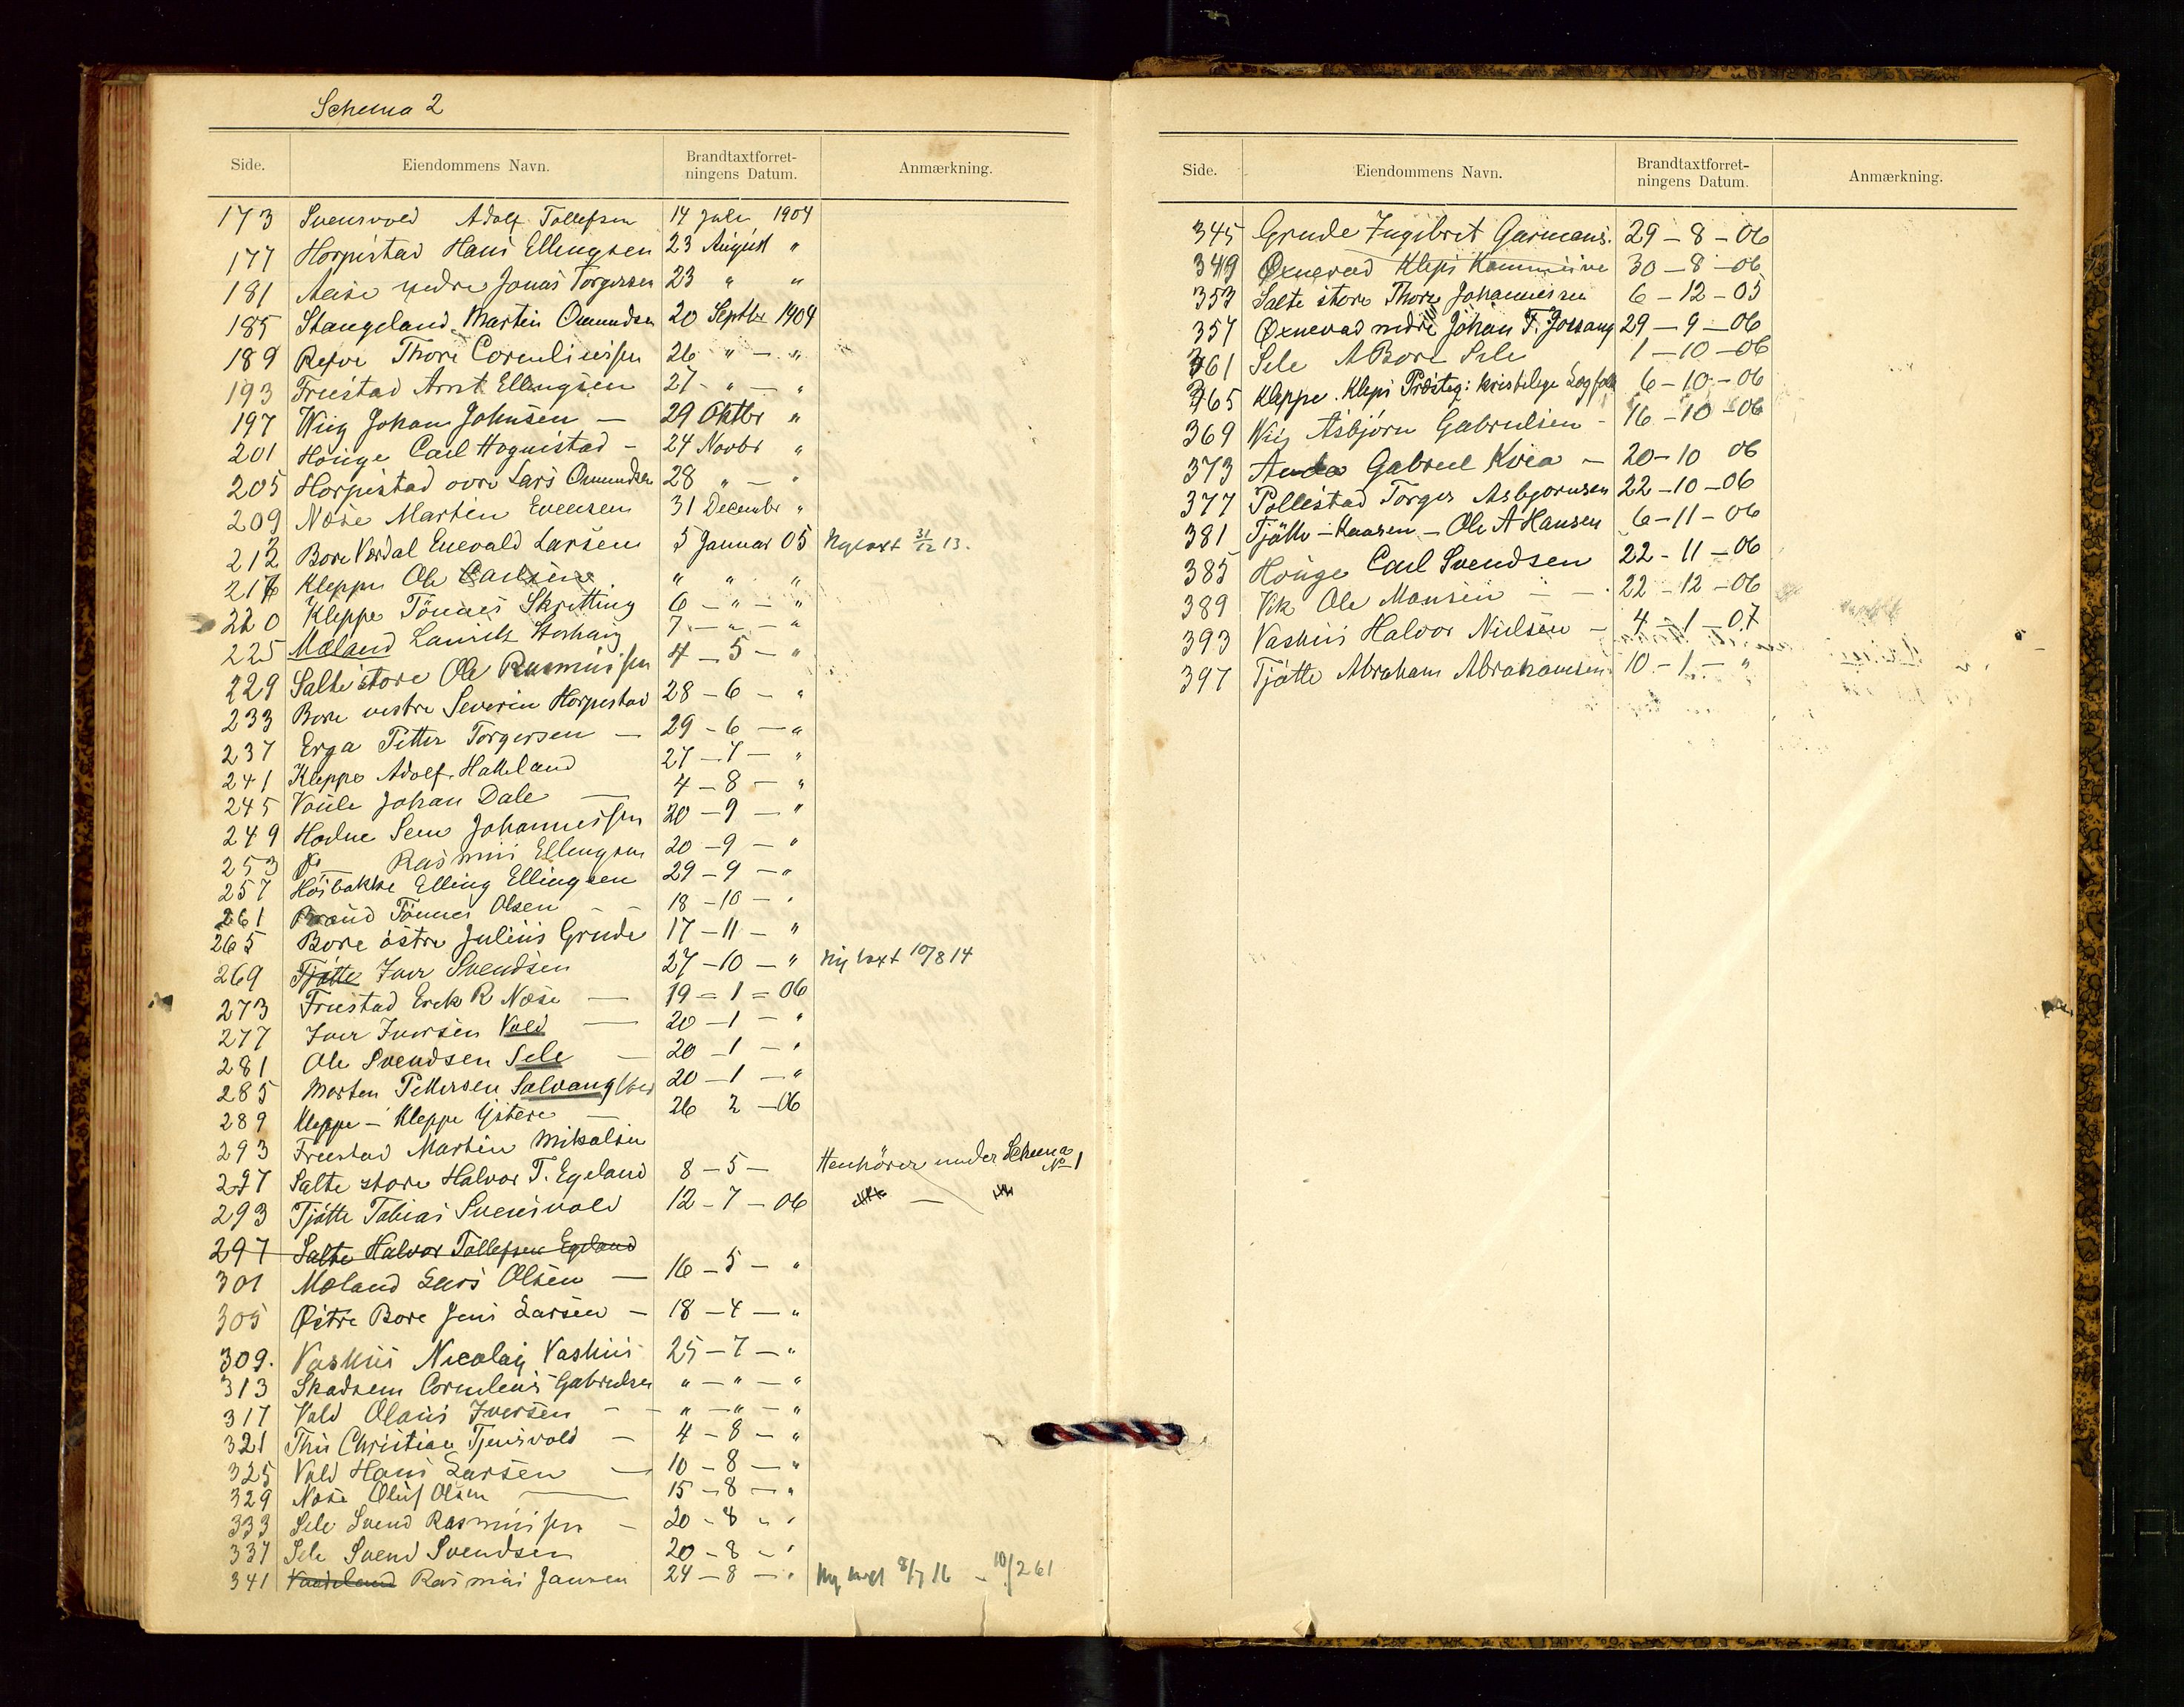 Schema 2
Side. Eiendommens Navn. Brandtaxtforret-ningens Datum. Anmærkning.
173 Svensvold Adolf Tollefsen 14 Juli 1904
177 Horpestad Hans Ellingsen 23 August "
181 Aase nedre Jonas Torgersen 23 " "
185 Stangeland Martin Omundsen 20 Septbr 1904
189 Refve Thore Corneliussen 26 " — "
193 Friestad Arnt Ellingsen 27 - " — "
197 Wiig Johan Johnsen — 29 Oktbr "
201 Houge Carl Hognestad — 24 Novbr "
205 Horpestad øvre Lars Omundsen 28 " — "
209 Næse Martin Evensen 31 December "
212 Bore Værdal Enevald Larsen 5 Januar 05 Ny taxt 31/12 13.
216 Kleppe Ole Carlsen " " "
220 Kleppe Tönnes Skretting 6 — " — "
225 Mæland Laurits Storhaug 7 — " — "
229 Salte store Ole Rasmussen 4 — 5 — "
233 Bore vestre Severin Horpestad 28 — 6 — "
237 Erga Petter Torgersen — 29 — 6 — "
241 Kleppe Adolf Hatteland 27 — 7 — "
245 Voule Johan Dale — 4 — 8 — "
249 Hodne Sem Johannessen 20 — 9 — "
253 Do Rasmus Ellingsen 20 — 9 — "
257 Høibakke Elling Ellingsen 29 — 9 — "
261 Braud Tönnes Olsen — 18 — 10 — "
265 Bore östre Julius Grude 17 — 11 — "
269 Tjötte Iver Svendsen 27 — 10 — " Ny taxt 10/8 14
273 Friestad Erik R Næse — 19 = 1 = 06
277 Iver Iversen Vold — 20 — 1 — "
281 Ole Svendsen Sele — 20 — 1 — "
285 Morten Pettersen Solvang 20 — 1 — "
289 Kleppe — Kleppe Ysteri — 26 2 — 06
293 Friestad Martin Mikalsen
297 Salte store Halvor T. Egeland 8 — 5 — Henhörer under Schema No 1
293 Tjötte Tobias Svensvold 12 — 7 — 06
297 Salte Halvor Tollefsen Egeland
301 Mæland Lars Olsen — 16 — 5 — "
305 Østre Bore Jens Larsen — 18 — 4 — "
309. Vashus Nicolay Vashus 25 — 7 — "
313 Skadsem Cornelius Gabrielsen " — " — "
317 Vold Olaus Iversen — — " — " — "
321 Thu Christian Tjensvold — 4 — 8 — "
325 Vold Hans Larsen — 10 — 8 — "
329 Næse Oluf Olsen — 15 — 8 — "
333 Sele Svend Rasmussen — 20 — 8 — "
337 Sele Svend Svendsen 20 — 8 — "
341 Rasmus Jansen 24 — 8 — " Ny taxt 8/7 16 — 10/2 61
Side. Eiendommens Navn. Brandtaxtforret-ningens Datum. Anmærkning.
345 Grude Ingebret Garmans. 29 — 8 — 06
349 Øxnevad Kleps Kommune 30 — 8 — 06
353 Salte store Thore Johannessen 6 — 12 — 05
357 Øxnevad nedre Johan T. Jossang 29 — 9 — 06
361 Sele A Bore Sele 1 — 10 — 06
365 Kleppe. Kleps Presteg: kristelige 6 — 10 — 06
369 Wiig Asbjörn Gabrielsen — 16 — 10 — 06
373 Anda Gabriel Kvia — 20 — 10 06
377 Pollestad Torger Asbjörnsen 22 — 10 — 06
381 Tjötte — Hansen — Ole A Hansen 6 — 11 — 06
385 Houge Carl Svendsen 22 — 11 — 06
389 Vik Ole Monsen — — 22 — 12 — 06
393 Vashus Halvor Nielsen — 4 — 1 — 07
397 Tjötte Abraham Abrahamsen 10 — 1 — "